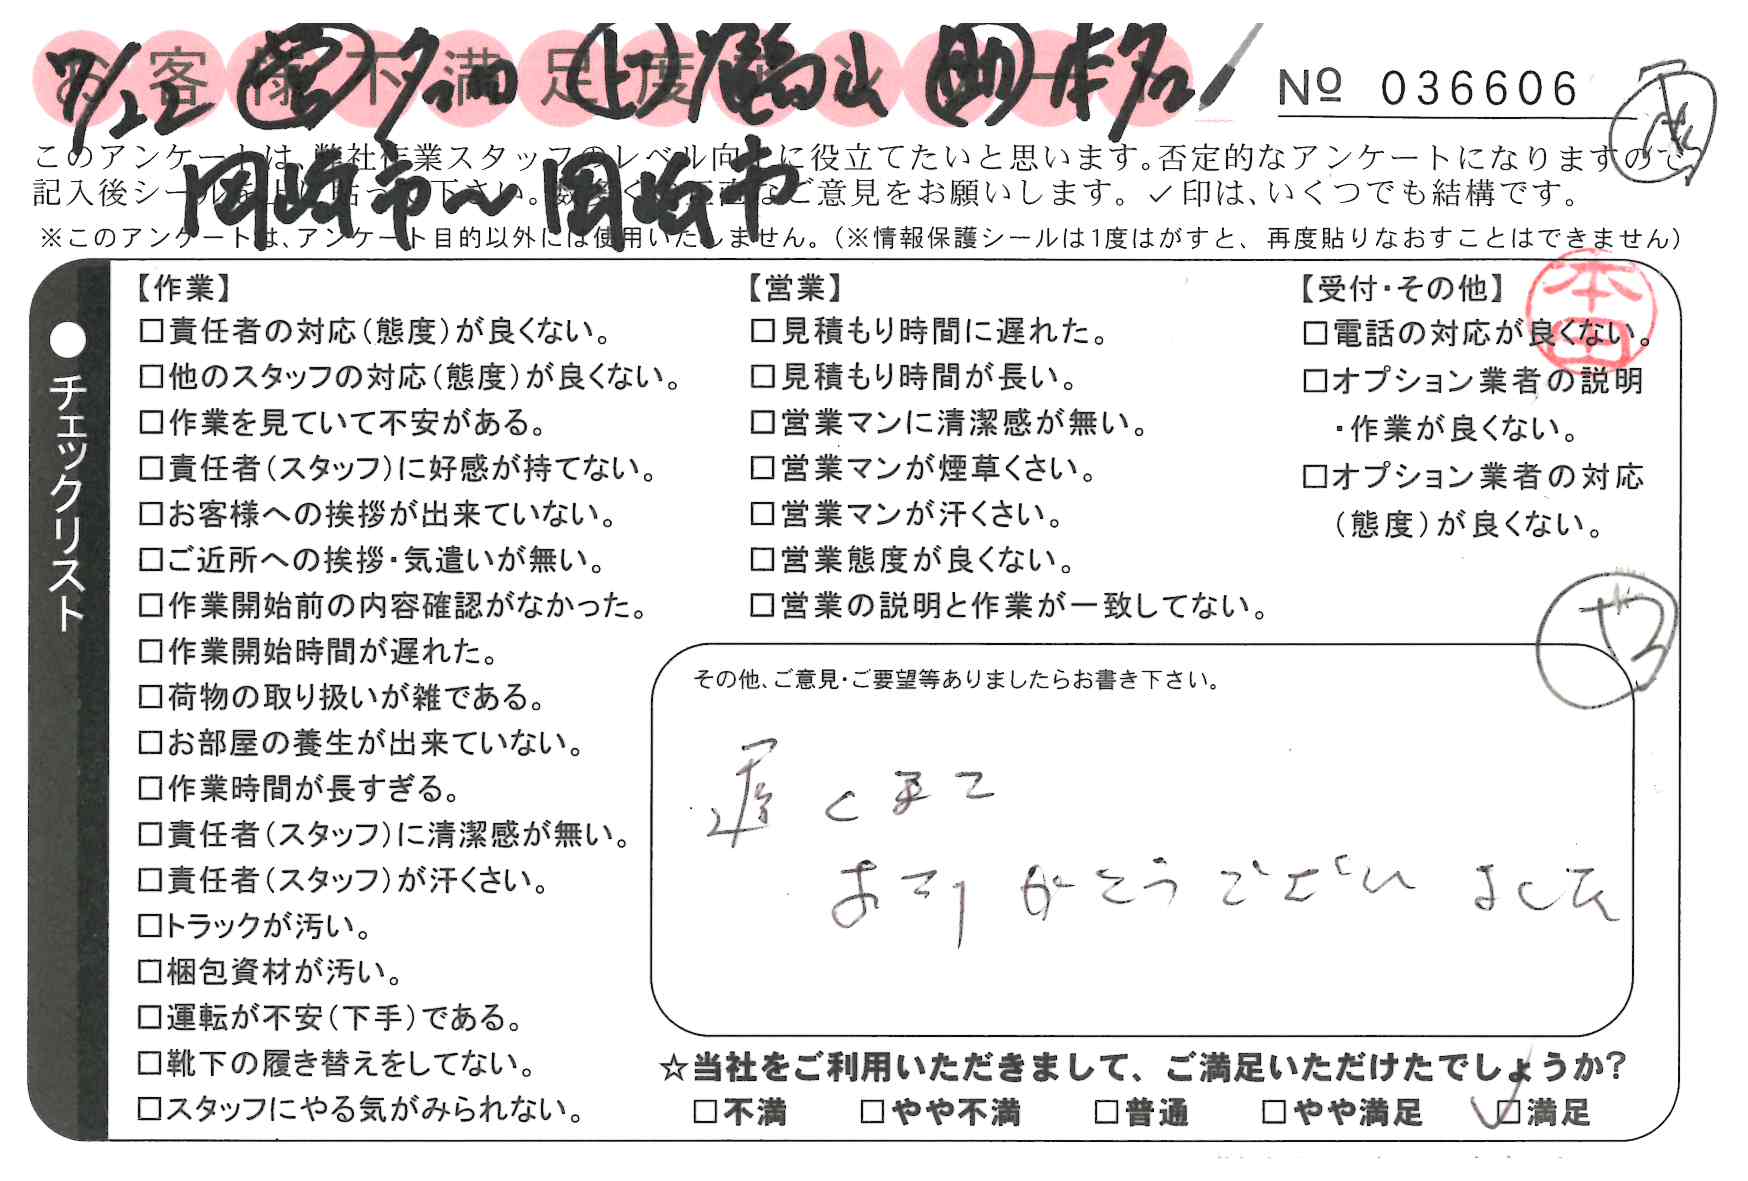 お客様不満足度チェックシート
7/22
No 036606
このアンケートは、弊社作業スタッフのレベル向上に役立てたいと思います。否定的なアンケートになりますので、
記入後シールを上に貼って下さい。数多くの正直なご意見をお願いします。✓印は、いくつでも結構です。
岡崎市〜岡崎市
※このアンケートは、アンケート目的以外には使用いたしません。（※情報保護シールは1度はがすと、再度貼りなおすことはできません）
●チェックリスト
【作業】
□責任者の対応（態度）が良くない。
□他のスタッフの対応（態度）が良くない。
□作業を見ていて不安がある。
□責任者（スタッフ）に好感が持てない。
□お客様への挨拶が出来ていない。
□ご近所への挨拶・気遣いが無い。
□作業開始前の内容確認がなかった。
□作業開始時間が遅れた。
□荷物の取り扱いが雑である。
□お部屋の養生が出来ていない。
□作業時間が長すぎる。
□責任者（スタッフ）に清潔感が無い。
□責任者（スタッフ）が汗くさい。
□トラックが汚い。
□梱包資材が汚い。
□運転が不安（下手）である。
□靴下の履き替えをしてない。
□スタッフにやる気がみられない。
【営業】
□見積もり時間に遅れた。
□見積もり時間が長い。
□営業マンに清潔感が無い。
□営業マンが煙草くさい。
□営業マンが汗くさい。
□営業態度が良くない。
□営業の説明と作業が一致してない。
【受付・その他】
□電話の対応が良くない。
□オプション業者の説明
・作業が良くない。
□オプション業者の対応
（態度）が良くない。
本田
その他、ご意見・ご要望等ありましたらお書き下さい。
遅くまで
ありがとうございました
☆当社をご利用いただきまして、ご満足いただけたでしょうか?
□不満 □やや不満 □普通 □やや満足 ☑満足